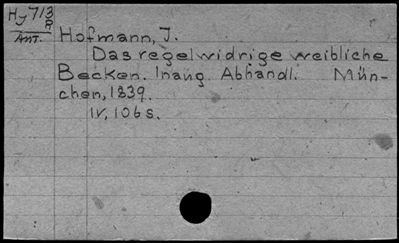 Hy 713
R
Ant.
Hofmann, J.
Das regelwidrige weibliche
Becken. Inaug. Abhandl. Mün-
chen, 1839.
IV, 106 s.